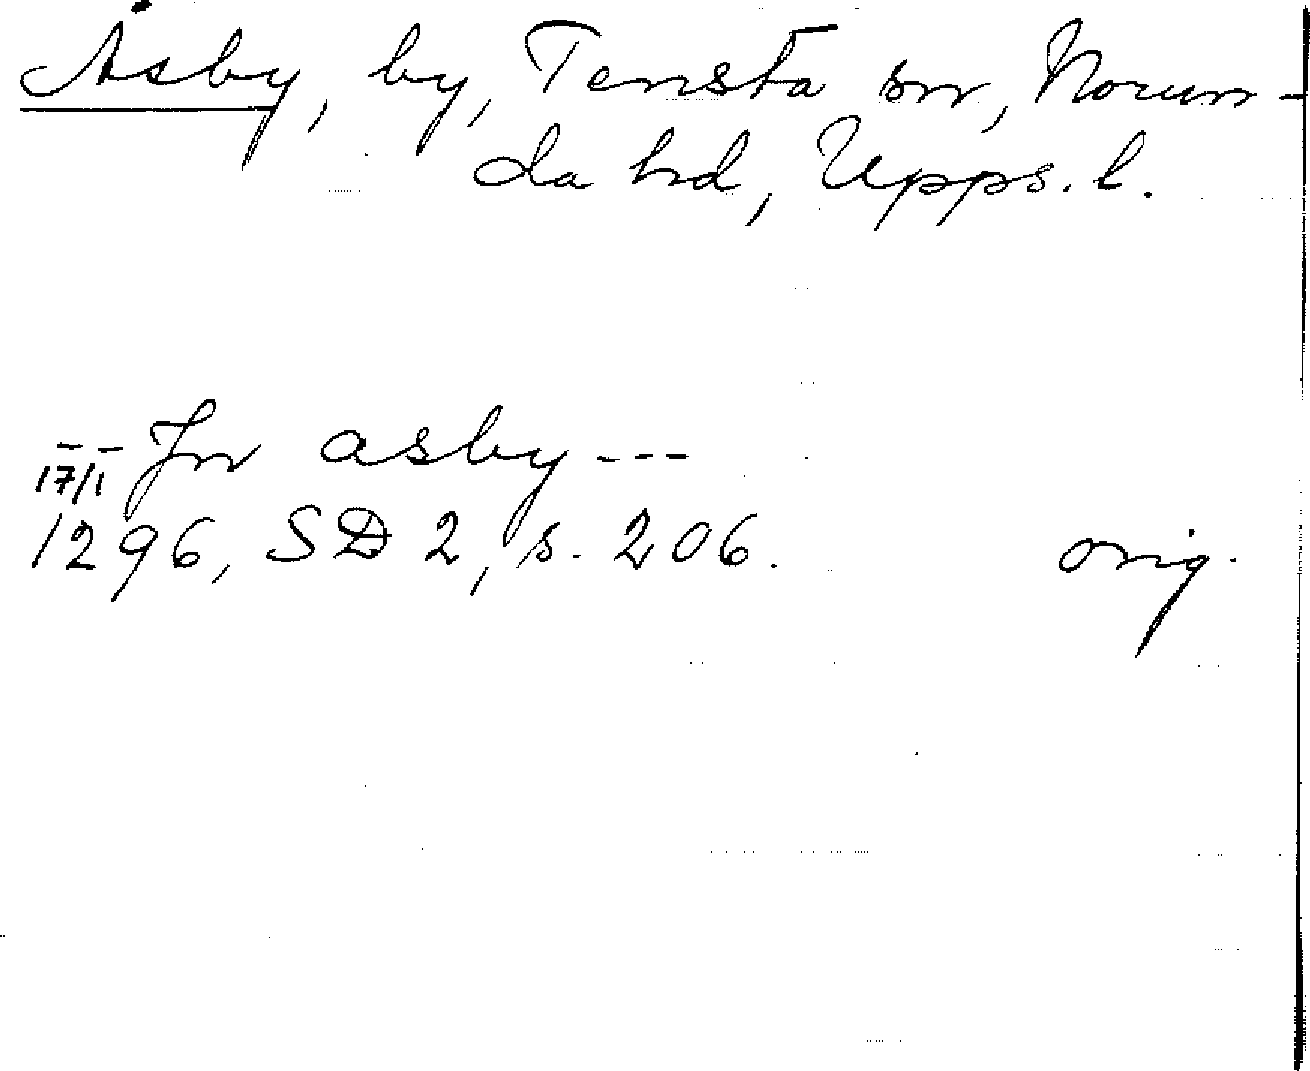 Åsby, by, Tensta sn, Norun-
da hd, Upps. l.
Jn asby ---
17/1
1296, SD 2, s. 206. orig.